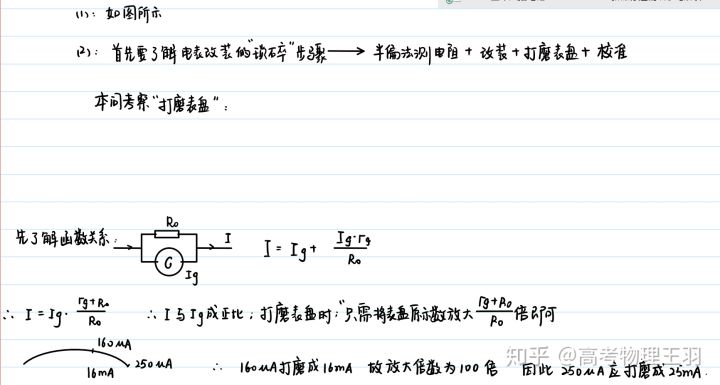 (1): 如图所示
(2): 首先要了解电表改装的"琐碎"步骤 ⟶ 半偏法测电阻 + 改装 + 打磨表盘 + 校准
本问考察"打磨表盘":
先了解函数关系: R₀ G Ig I I = Ig + Ig·rg/R₀
∴ I = Ig· (rg+R₀)/R₀ ∴ I与Ig成正比; 打磨表盘时:"只需将表盘原示数放大 (rg+R₀)/R₀ 倍即可
160μA
16mA 250μA ∴ 160μA打磨成16mA 故放大倍数为100倍 因此 250μA应打磨成25mA.
知乎 @高考物理王羽